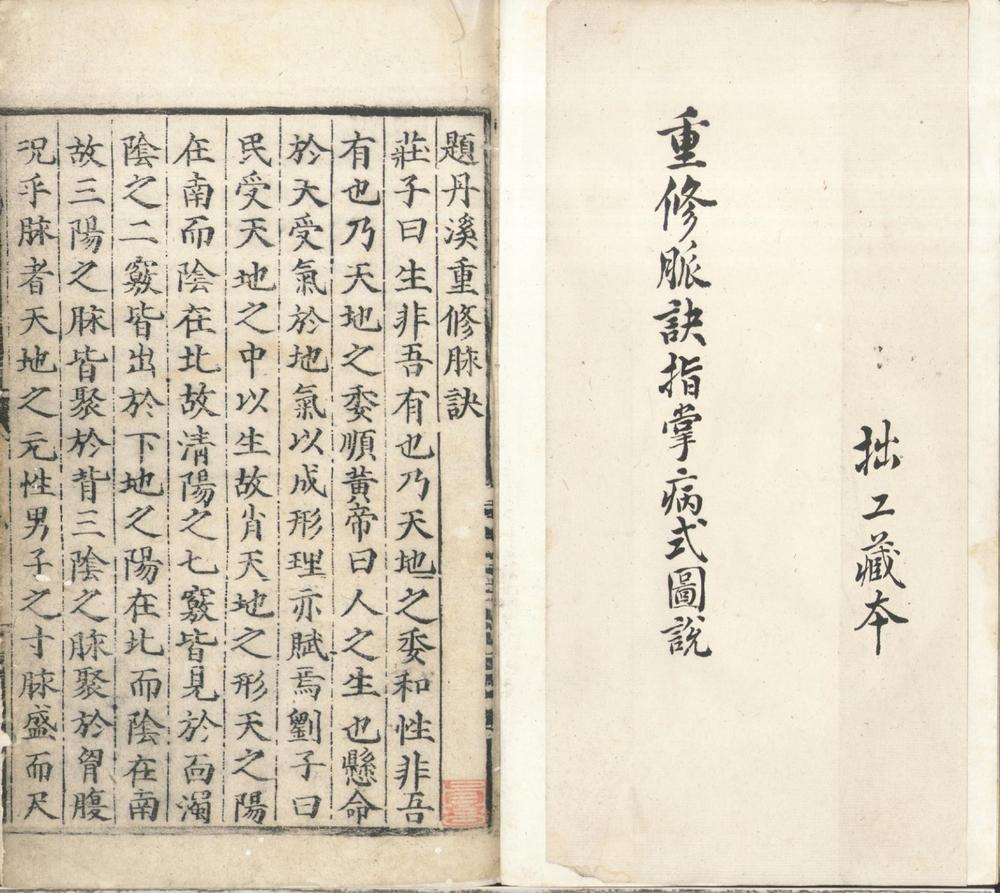 拙工藏本
重修脈訣指掌病式圖說
題丹溪重修脉訣
莊子曰生非吾有也乃天地之委和性非吾
有也乃天地之委順黃帝曰人之生也懸命
於天受氣於地氣以成形理亦賦焉劉子曰
民受天地之中以生故肖天地之形天之陽
在南而陰在北故清陽之七竅皆見於面濁
陰之二竅皆出於下地之陽在北而陰在南
故三陽之脉皆聚於背三陰之脉聚於胷腹
況乎脉者天地之元性男子之寸脉盛而尺